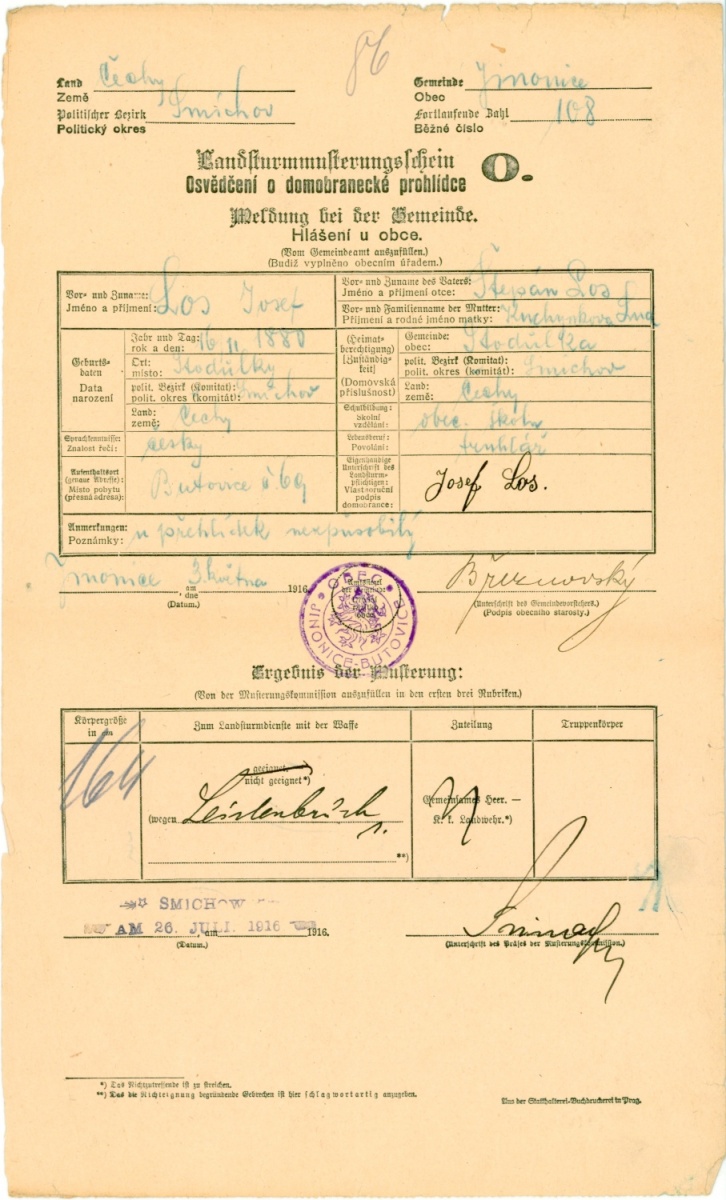 86
Land Čechy Gemeinde Jinonice
Země Obec
Politischer Bezirk Smíchov Fortlaufende Zahl 108
Politický okres Běžné číslo
Landsturmmusterungsschein O.
Osvědčení o domobranecké prohlídce
Meldung bei der Gemeinde.
Hlášení u obce.
(Vom Gemeindeamt auszufüllen.)
(Budiž vyplněno obecním úřadem.)
Vor- und Zuname: Los Josef
Jméno a příjmení:
Vor- und Zuname des Vaters: Štepán Los
Jméno a příjmení otce:
Vor- und Familienname der Mutter:
Příjmení a rodné jméno matky:
Geburtsdaten
Data narození
Jahr und Tag: 16 11 1880
rok a den:
Ort: Stodůlky
místo:
polit. Bezirk (Komitat): Smíchov
polit. okres (komitát):
Land: Čechy
země:
(Heimatberechtigung)
(Zuständigkeit)
(Domovská příslušnost)
Gemeinde:
obec:
polit. Bezirk (Komitat): Smíchov
polit. okres (komitát):
Land: Čechy
země:
Sprachkenntnisse: česky
Znalost řečí:
Schulbildung: obec. škola
Školní vzdělání:
Lebensberuf: truhlář
Povolání:
Aufenthaltsort (genaue Adresse): Butovice č. 69
Místo pobytu (přesná adresa):
Eigenhändige Unterschrift des Landsturmpflichtigen: Josef Los.
Vlastnoruční podpis domobrance:
Anmerkungen: u přehlídek nezpůsobilý
Poznámky:
Jinonice 3. května 1916
am
dne
(Datum.)
OBEC
JINONICE-BUTOVICE
Březnovský
(Unterschrift des Gemeindevorstehers.)
(Podpis obecního starosty.)
Ergebnis der Musterung:
(Von der Musterungskommission auszufüllen in den ersten drei Rubriken.)
Körpergröße in cm
Zum Landsturmdienste mit der Waffe
Zuteilung
Truppenkörper
164
geeignet. —
nicht geeignet*)
(wegen Leistenbruch
**)
Gemeinsames Heer. —
K. k. Landwehr.*)
SMICHOW
AM 26. JULI. 1916, am 1916.
(Datum.)
(Unterschrift des Präses der Musterungskommission.)
*) Das Nichtzutreffende ist zu streichen.
**) Das die Nichteignung begründende Gebrechen ist hier schlagwortartig anzugeben.
Aus der Statthalterei-Buchdruckerei in Prag.